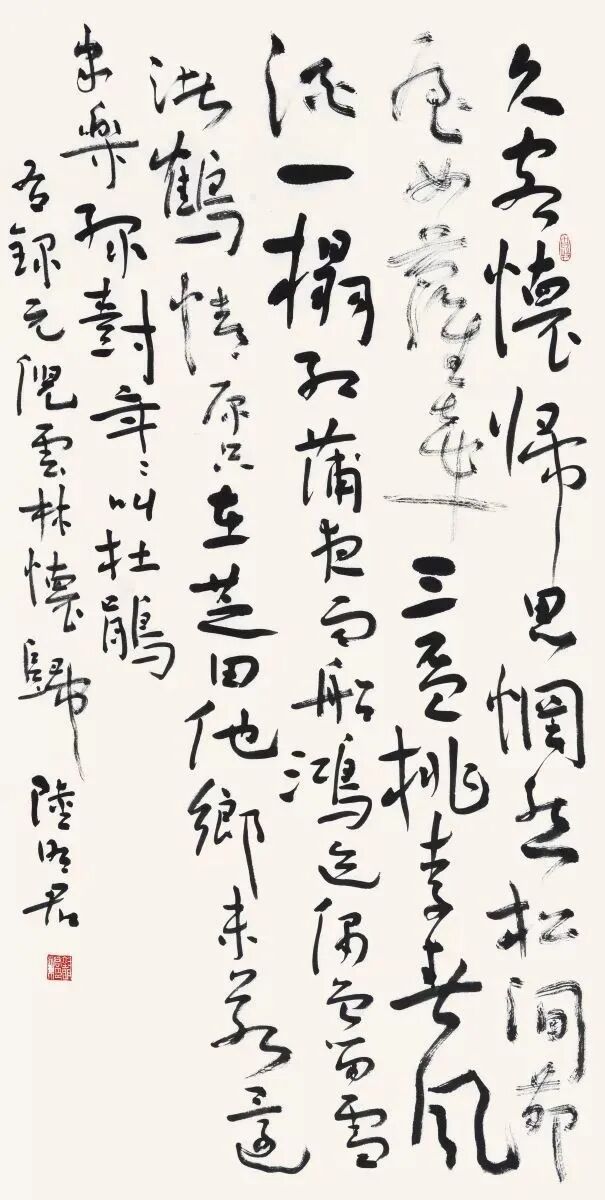 久客懷歸思惘然松間茆
屋女蘿牽三盃桃李春風
酒一榻孤蒲夜雨船鴻迹偶曾留雪
渚鶴情原只在芝田他鄉未若還
家樂綠樹年々叫杜鵑
右錄元倪雲林懷歸 陸明君